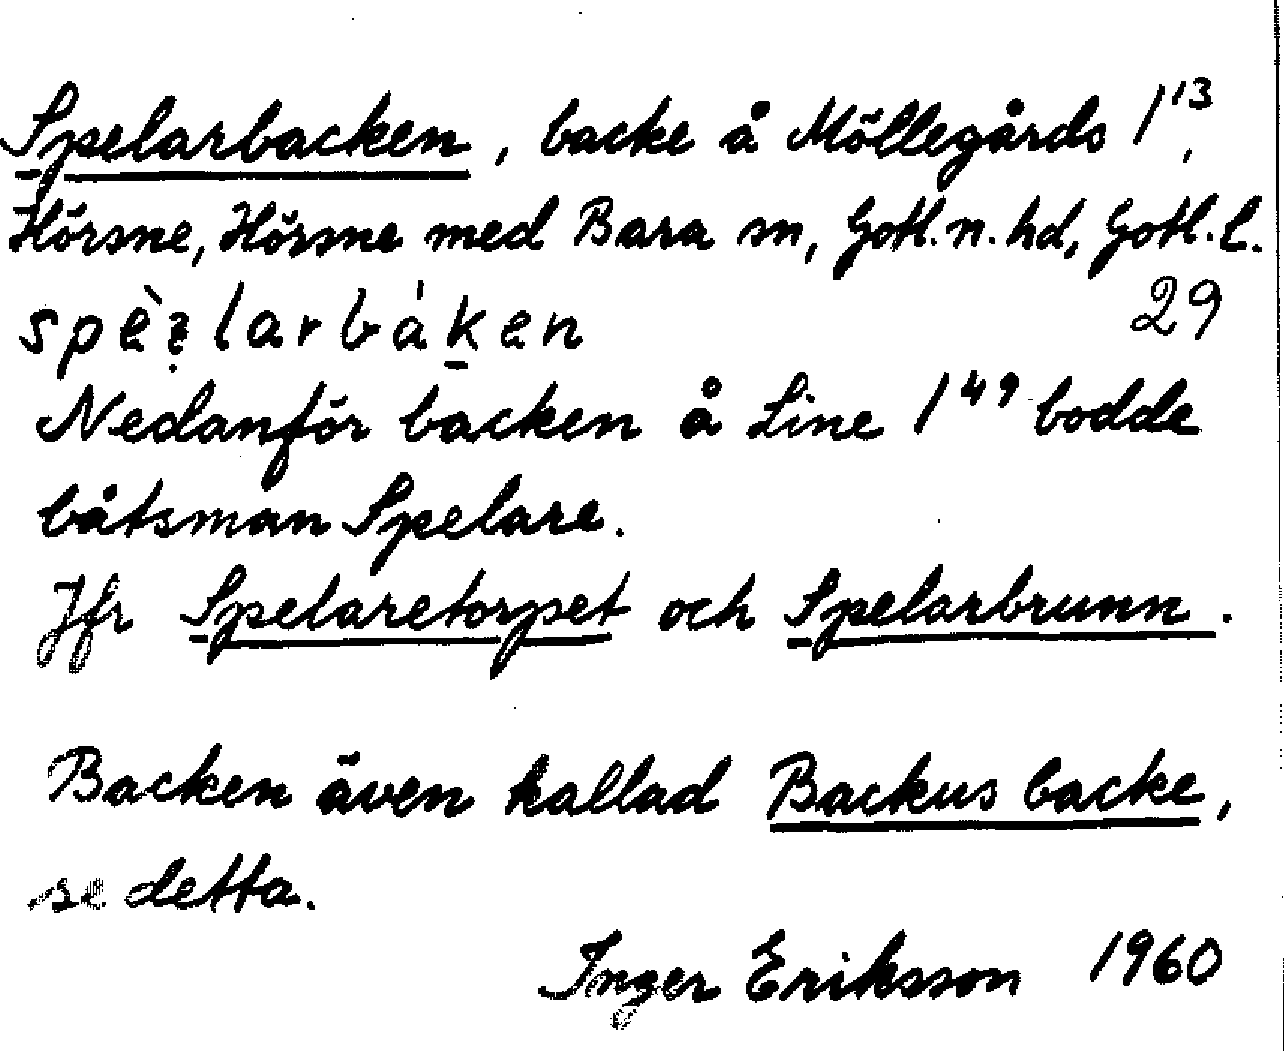 Spelarbacken, backe å Möllegårds 1¹³,
Hörsne, Hörsne med Bara sn, Gotl. n. hd, Gotl. l.
29
Nedanför backen å Line 1⁴⁹ bodde
båtsman Spelare.
Jfr Spelaretorpet och Spelarbrunn.
Backen även kallad Backus backe,
se detta.
Inger Eriksson 1960